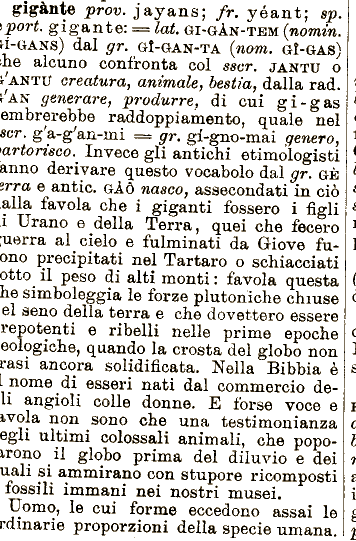 gigànte prov. jayans; fr. yéant; sp.
port. gigante: = lat. GI-GÀN-TEM (nomin.
GI-GANS) dal gr. GÎ-GAN-TA (nom. GÎ-GAS)
che alcuno confronta col sscr. JANTU o
G'ANTU creatura, animale, bestia, dalla rad.
G'AN generare, produrre, di cui gi-gas
sembrerebbe raddoppiamento, quale nel
sscr. g'a-g'an-mi = gr. gí-gno-mai genero,
partorisco. Invece gli antichi etimologisti
fanno derivare questo vocabolo dal gr. GÈ
terra e antic. GÀÔ nasco, assecondati in ciò
dalla favola che i giganti fossero i figli
di Urano e della Terra, quei che fecero
guerra al cielo e fulminati da Giove fu-
rono precipitati nel Tartaro o schiacciati
sotto il peso di alti monti: favola questa
che simboleggia le forze plutoniche chiuse
nel seno della terra e che dovettero essere
prepotenti e ribelli nelle prime epoche
geologiche, quando la crosta del globo non
erasi ancora solidificata. Nella Bibbia è
il nome di esseri nati dal commercio de-
gli angioli colle donne. E forse voce e
favola non sono che una testimonianza
degli ultimi colossali animali, che popo-
larono il globo prima del diluvio e dei
quali si ammirano con stupore ricomposti
i fossili immani nei nostri musei.
Uomo, le cui forme eccedono assai le
ordinarie proporzioni della specie umana.